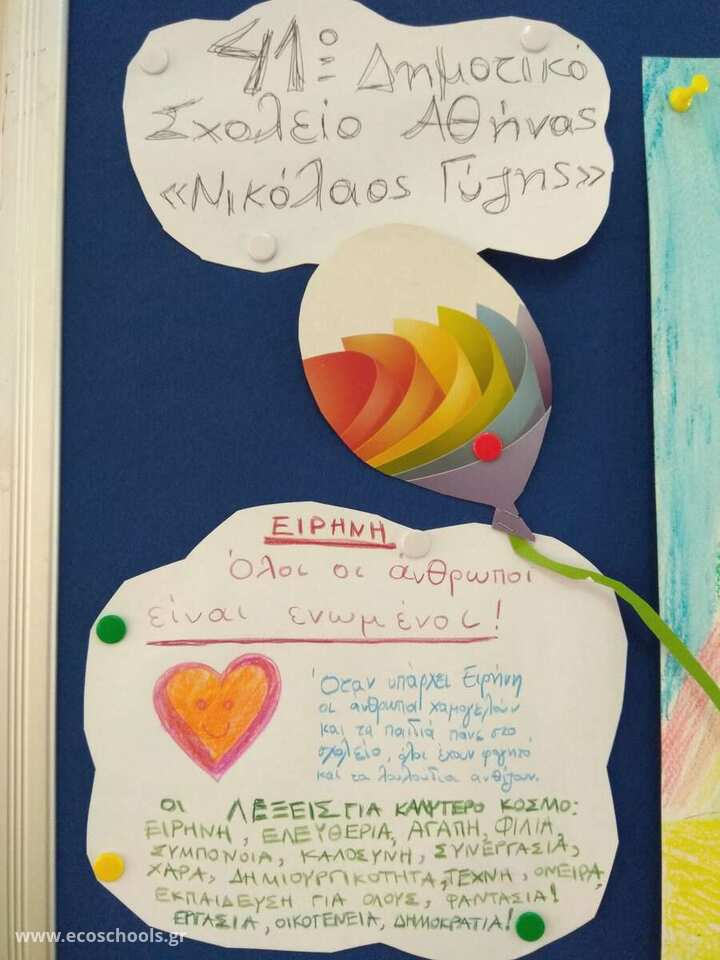 41ο Δημοτικό
Σχολείο Αθήνας
«Νικόλαος Γύζης»
ΕΙΡΗΝΗ
Όλοι οι άνθρωποι
είναι ενωμένοι!
Όταν υπάρχει Ειρήνη
οι άνθρωποι χαμογελούν
και τα παιδιά πάνε στο
σχολείο, όλοι έχουν φαγητό
και τα λουλούδια ανθίζουν.
ΟΙ ΛΕΞΕΙΣ ΓΙΑ ΚΑΛΥΤΕΡΟ ΚΟΣΜΟ:
ΕΙΡΗΝΗ, ΕΛΕΥΘΕΡΙΑ, ΑΓΑΠΗ, ΦΙΛΙΑ,
ΣΥΜΠΟΝΟΙΑ, ΚΑΛΟΣΥΝΗ, ΣΥΝΕΡΓΑΣΙΑ,
ΧΑΡΑ, ΔΗΜΙΟΥΡΓΙΚΟΤΗΤΑ, ΤΕΧΝΗ, ΟΝΕΙΡΑ,
ΕΚΠΑΙΔΕΥΣΗ ΓΙΑ ΟΛΟΥΣ, ΦΑΝΤΑΣΙΑ!
ΕΡΓΑΣΙΑ, ΟΙΚΟΓΕΝΕΙΑ, ΔΗΜΟΚΡΑΤΙΑ!
www.ecoschools.gr